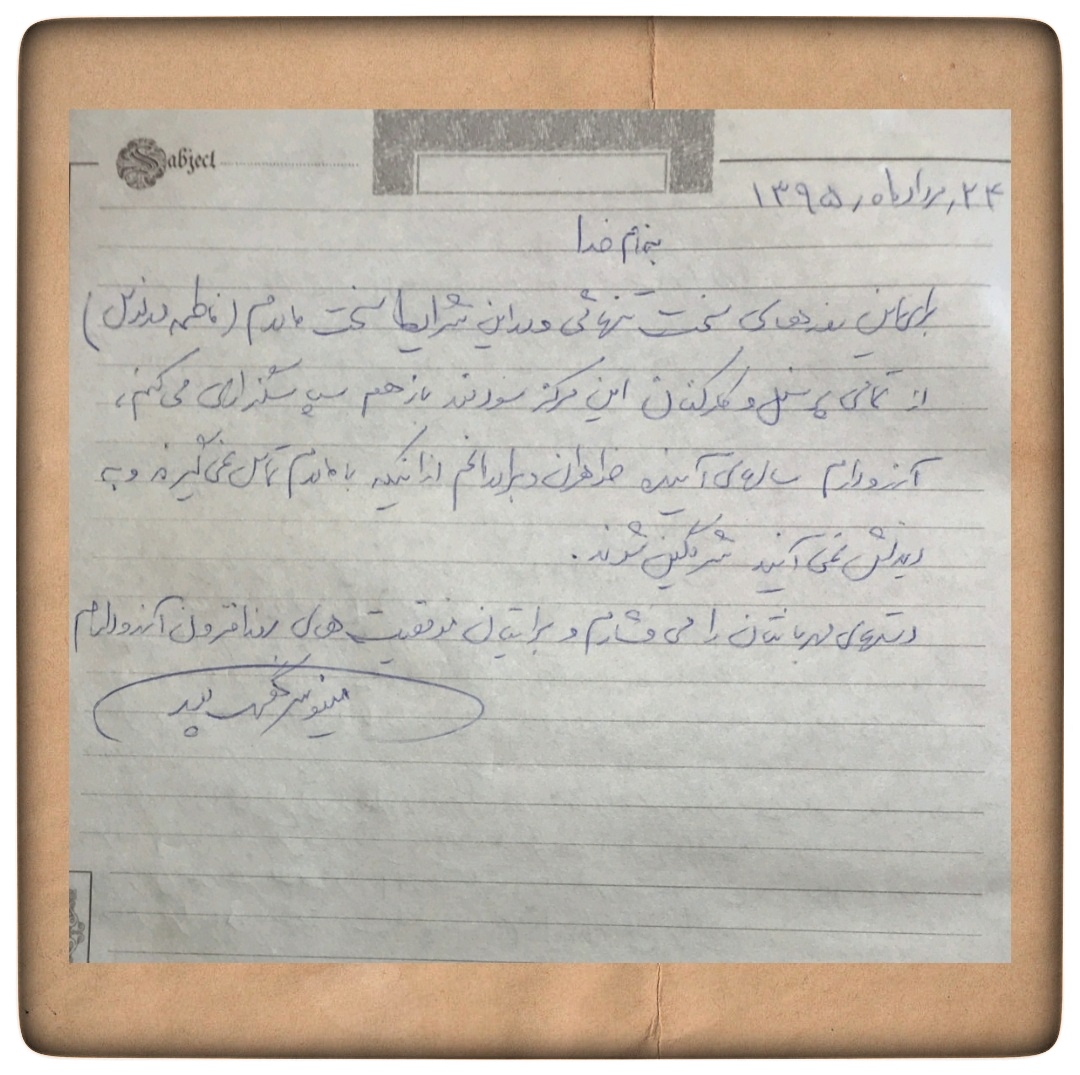 Sabject
۲۴, مرداد ماه, ۱۳۹۵
بنام خدا
برای این روزهای سخت تنهائی و در این شرایط سخت مادرم (فاطمه
از تمامی پرسنل و کارکنان این مرکز سودمند باز هم سپاسگزاری می کنم،
آرزو دارم سالهای آینده خواهران و برادرانم از اینکه با مادرم تماس نمی گیرند و به
دیدنش نمی آیند شرمگین شوند.
دستهای مهربانتان را می فشارم و برایتان موفقیت های روزافزون آرزو دارم